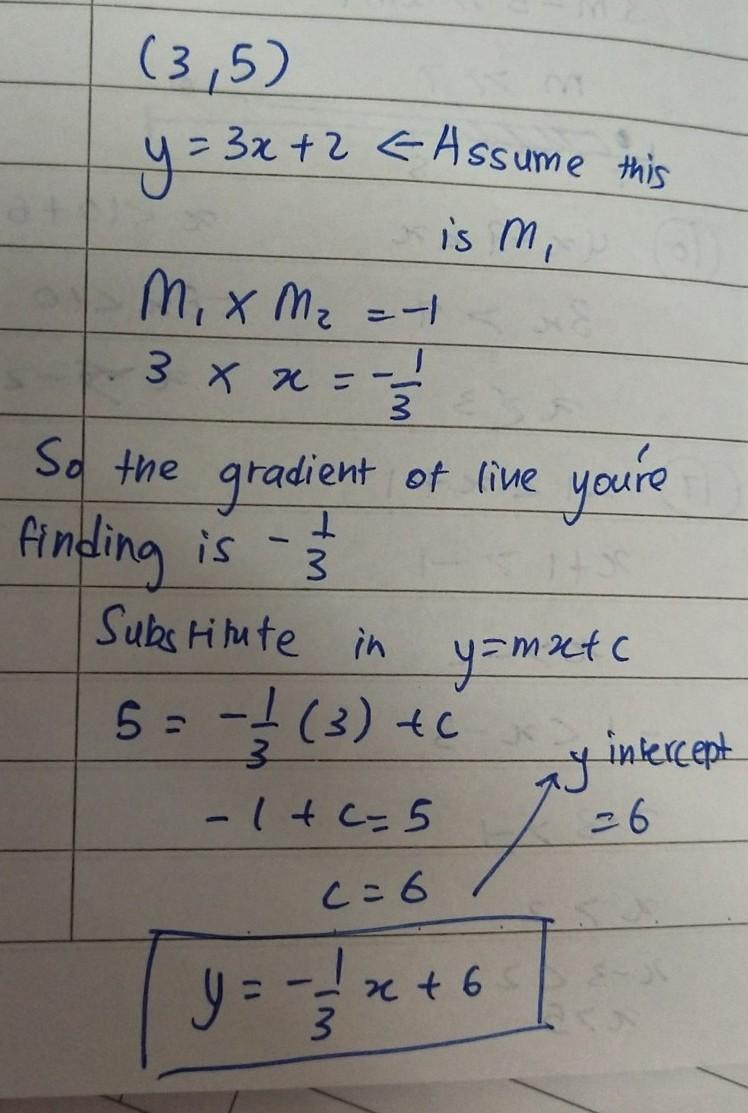 (3,5)
y = 3x + 2 ← Assume this
is M₁
M₁ × M₂ = -1
3 × x = -1/3
So the gradient of line you're
finding is -1/3
Substitute in y=mx+c
5 = -1/3 (3) + c
y intercept
-1 + c = 5
= 6
c = 6
y = -1/3 x + 6